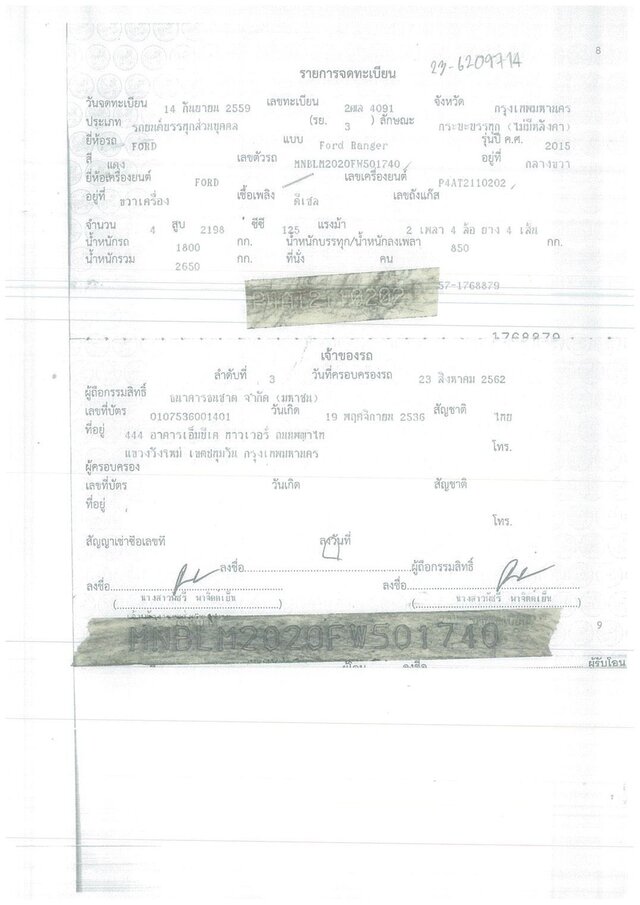 8
23-6209714
รายการจดทะเบียน
วันจดทะเบียน 14 กันยายน 2559 เลขทะเบียน 4091 จังหวัด กรุงเทพมหานคร
ประเภท รถยนต์บรรทุกส่วนบุคคล (รย. 3 ) ลักษณะ กระบะบรรทุก (ไม่มีหลังคา)
ยี่ห้อรถ FORD แบบ Ford Ranger รุ่นปี ค.ศ. 2015
สี แดง เลขตัวรถ MNBLM2020FW501740 อยู่ที่ กลางขวา
ยี่ห้อเครื่องยนต์ FORD เลขเครื่องยนต์ P4AT2110202
อยู่ที่ ขวาเครื่อง เชื้อเพลิง ดีเซล เลขถังแก๊ส
จำนวน 4 สูบ 2198 ซีซี 125 แรงม้า 2 เพลา 4 ล้อ ยาง 4 เส้น
น้ำหนักรถ 1800 กก. น้ำหนักบรรทุก/น้ำหนักลงเพลา 850 กก.
น้ำหนักรวม 2650 กก. ที่นั่ง คน
57-1768879
1768879
เจ้าของรถ
ลำดับที่ 3 วันที่ครอบครองรถ 23 สิงหาคม 2562
ผู้ถือกรรมสิทธิ์ ธนาคารธนชาต จำกัด (มหาชน)
เลขที่บัตร 0107536001401 วันเกิด 19 พฤศจิกายน 2536 สัญชาติ ไทย
ที่อยู่ 444 อาคารเอ็มบีเค ทาวเวอร์ ถนนพญาไท
แขวงวังใหม่ เขตปทุมวัน กรุงเทพมหานคร โทร.
ผู้ครอบครอง
เลขที่บัตร วันเกิด สัญชาติ
ที่อยู่
โทร.
สัญญาเช่าซื้อเลขที่ ลงวันที่
ลงชื่อ ผู้ถือกรรมสิทธิ์
ลงชื่อ ลงชื่อ
MNBLM2020FW501740
9
ผู้โอน ลงชื่อ ผู้รับโอน